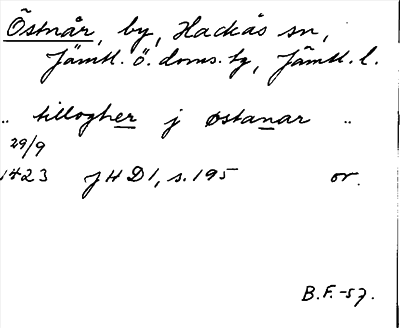 Östnår, by, Hackås sn,
Jämtl. ö. doms. tg, Jämtl. l.
.. tillogher j østanar ..
29/9
1423 JHD1, s. 195 or.
B.F.-57.